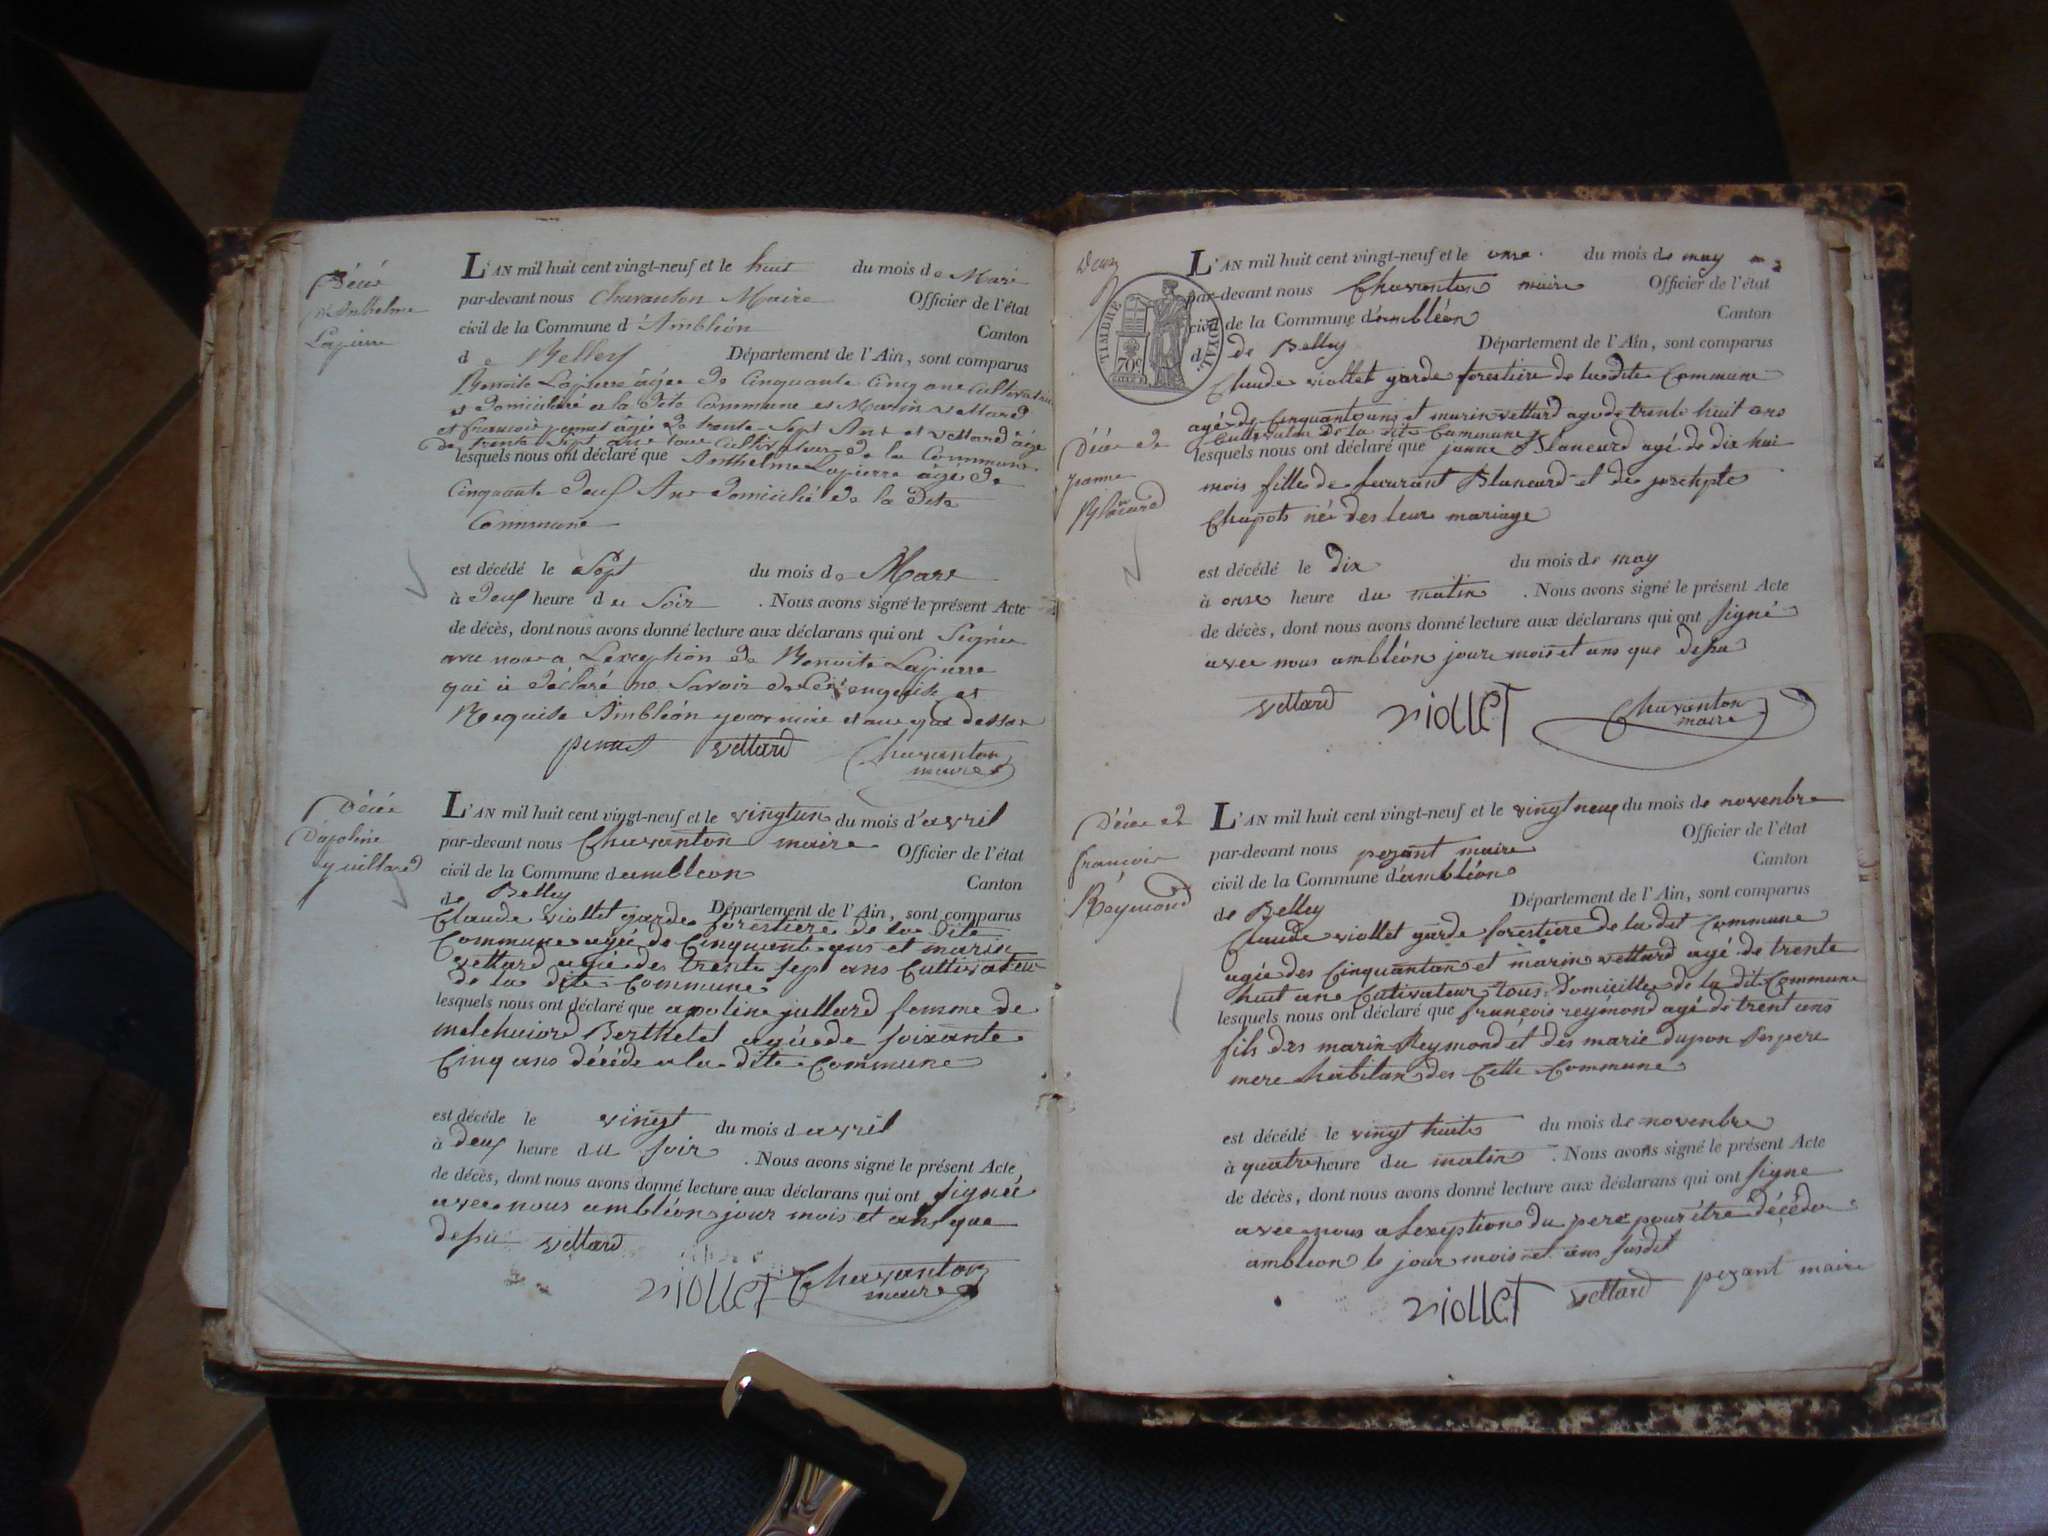 Décé
d'Anthelme
Lapierre
L'AN mil huit cent vingt-neuf et le huit du mois de Mars
par-devant nous Chavanton Maire Officier de l'état
civil de la Commune d'Ambléon Canton
de Belley Département de l'Ain, sont comparus
Benoite Lapierre âgée de Cinquante Cinq ans
et domicilié a la dite Commune et Marin Vettard
et francois âgée de trente Sept Ans et Vettard âgé
de trente Sept ans tous Cultivateurs de la Commune
lesquels nous ont déclaré que Anthelme Lapierre âgé de
Cinquante deux Ans domicilié de la dite
Commune
est décédé le Sept du mois de Mars
à deux heure du Soir . Nous avons signé le présent Acte
de décès, dont nous avons donné lecture aux déclarans qui ont Signée
avec nous a Lexception de Benoite Lapierre
qui à déclaré ne Savoir de
Requise Ambléon jour mois et an que dessus
Vettard Chavanton
maire
Décée
D'apoline
guillard
L'AN mil huit cent vingt-neuf et le vingtun du mois d'avril
par-devant nous Chavanton maire Officier de l'état
civil de la Commune d ambleon Canton
de Belley Département de l'Ain, sont comparus
Claude viollet garde forestiere de la dite
Commune agée de Cinquant ans et marin
vettard agée des trente sep ans Cultivateur
de la dite Commune
lesquels nous ont déclaré que apoline jullard femme de
melchuiord Berthelet agée de soixante
Cinq ans décéde a la dite Commune
est décédé le vingt du mois d avril
à deux heure du soir . Nous avons signé le présent Acte
de décès, dont nous avons donné lecture aux déclarans qui ont signée
avec nous ambléon jour mois et ans que
desu vettard
viollet Chavanton
maire
deux
TIMBRE ROYAL
70c
L'AN mil huit cent vingt-neuf et le onse du mois de may
par-devant nous Chavanton maire Officier de l'état
civil de la Commune d'ambléon Canton
d de Belley Département de l'Ain, sont comparus
Claude viollet garde forestiere de la dite Commune
agé de Cinquante ans et marin vettard age de trente huit ans
Cultivateur De la dit Commune
Décée de
jeanne
Blancard
lesquels nous ont déclaré que janne Blancard agé de dix hui
mois fille de Laurant Blancard et de josephte
Chapots né des leur mariage
est décédé le dix du mois de may
à onse heure du matin . Nous avons signé le présent Acte
de décès, dont nous avons donné lecture aux déclarans qui ont signé
avec nous ambléon jour mois et ans que desu
vettard viollet Chavanton
maire
Décée de
françois
Reymond
L'AN mil huit cent vingt-neuf et le vingt neuf du mois de novenbre
par-devant nous pezant maire Officier de l'état
civil de la Commune d'ambléon Canton
de Belley Département de l'Ain, sont comparus
Claude viollet garde forestiere de la dit Commune
agée des Cinquantan et marin vettard agé de trente
huit ans Cultivateur tous domicilles de la dit Commune
lesquels nous ont déclaré que françois reymond agé de trent ans
fils des marin Reymond et des marie dupon
mere habitan des Cette Commune
est décédé le vingt huite du mois de novenbre
à quatre heure du matin . Nous avons signé le présent Acte
de décès, dont nous avons donné lecture aux déclarans qui ont signe
avec nous a lexeption du pere pour être décédé
ambleon le jour mois et ans susdit
viollet vettard pezant maire